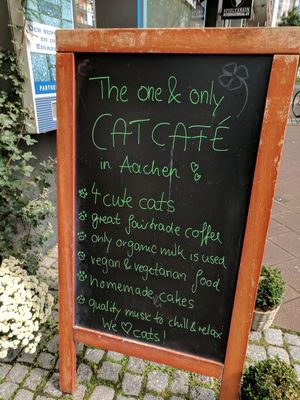 The one & only
CAT CAFÉ
in Aachen
4 cute cats
great fairtrade coffee
only organic milk is used
vegan & vegetarian food
homemade cakes
quality music to chill & relax
We ♡ cats!